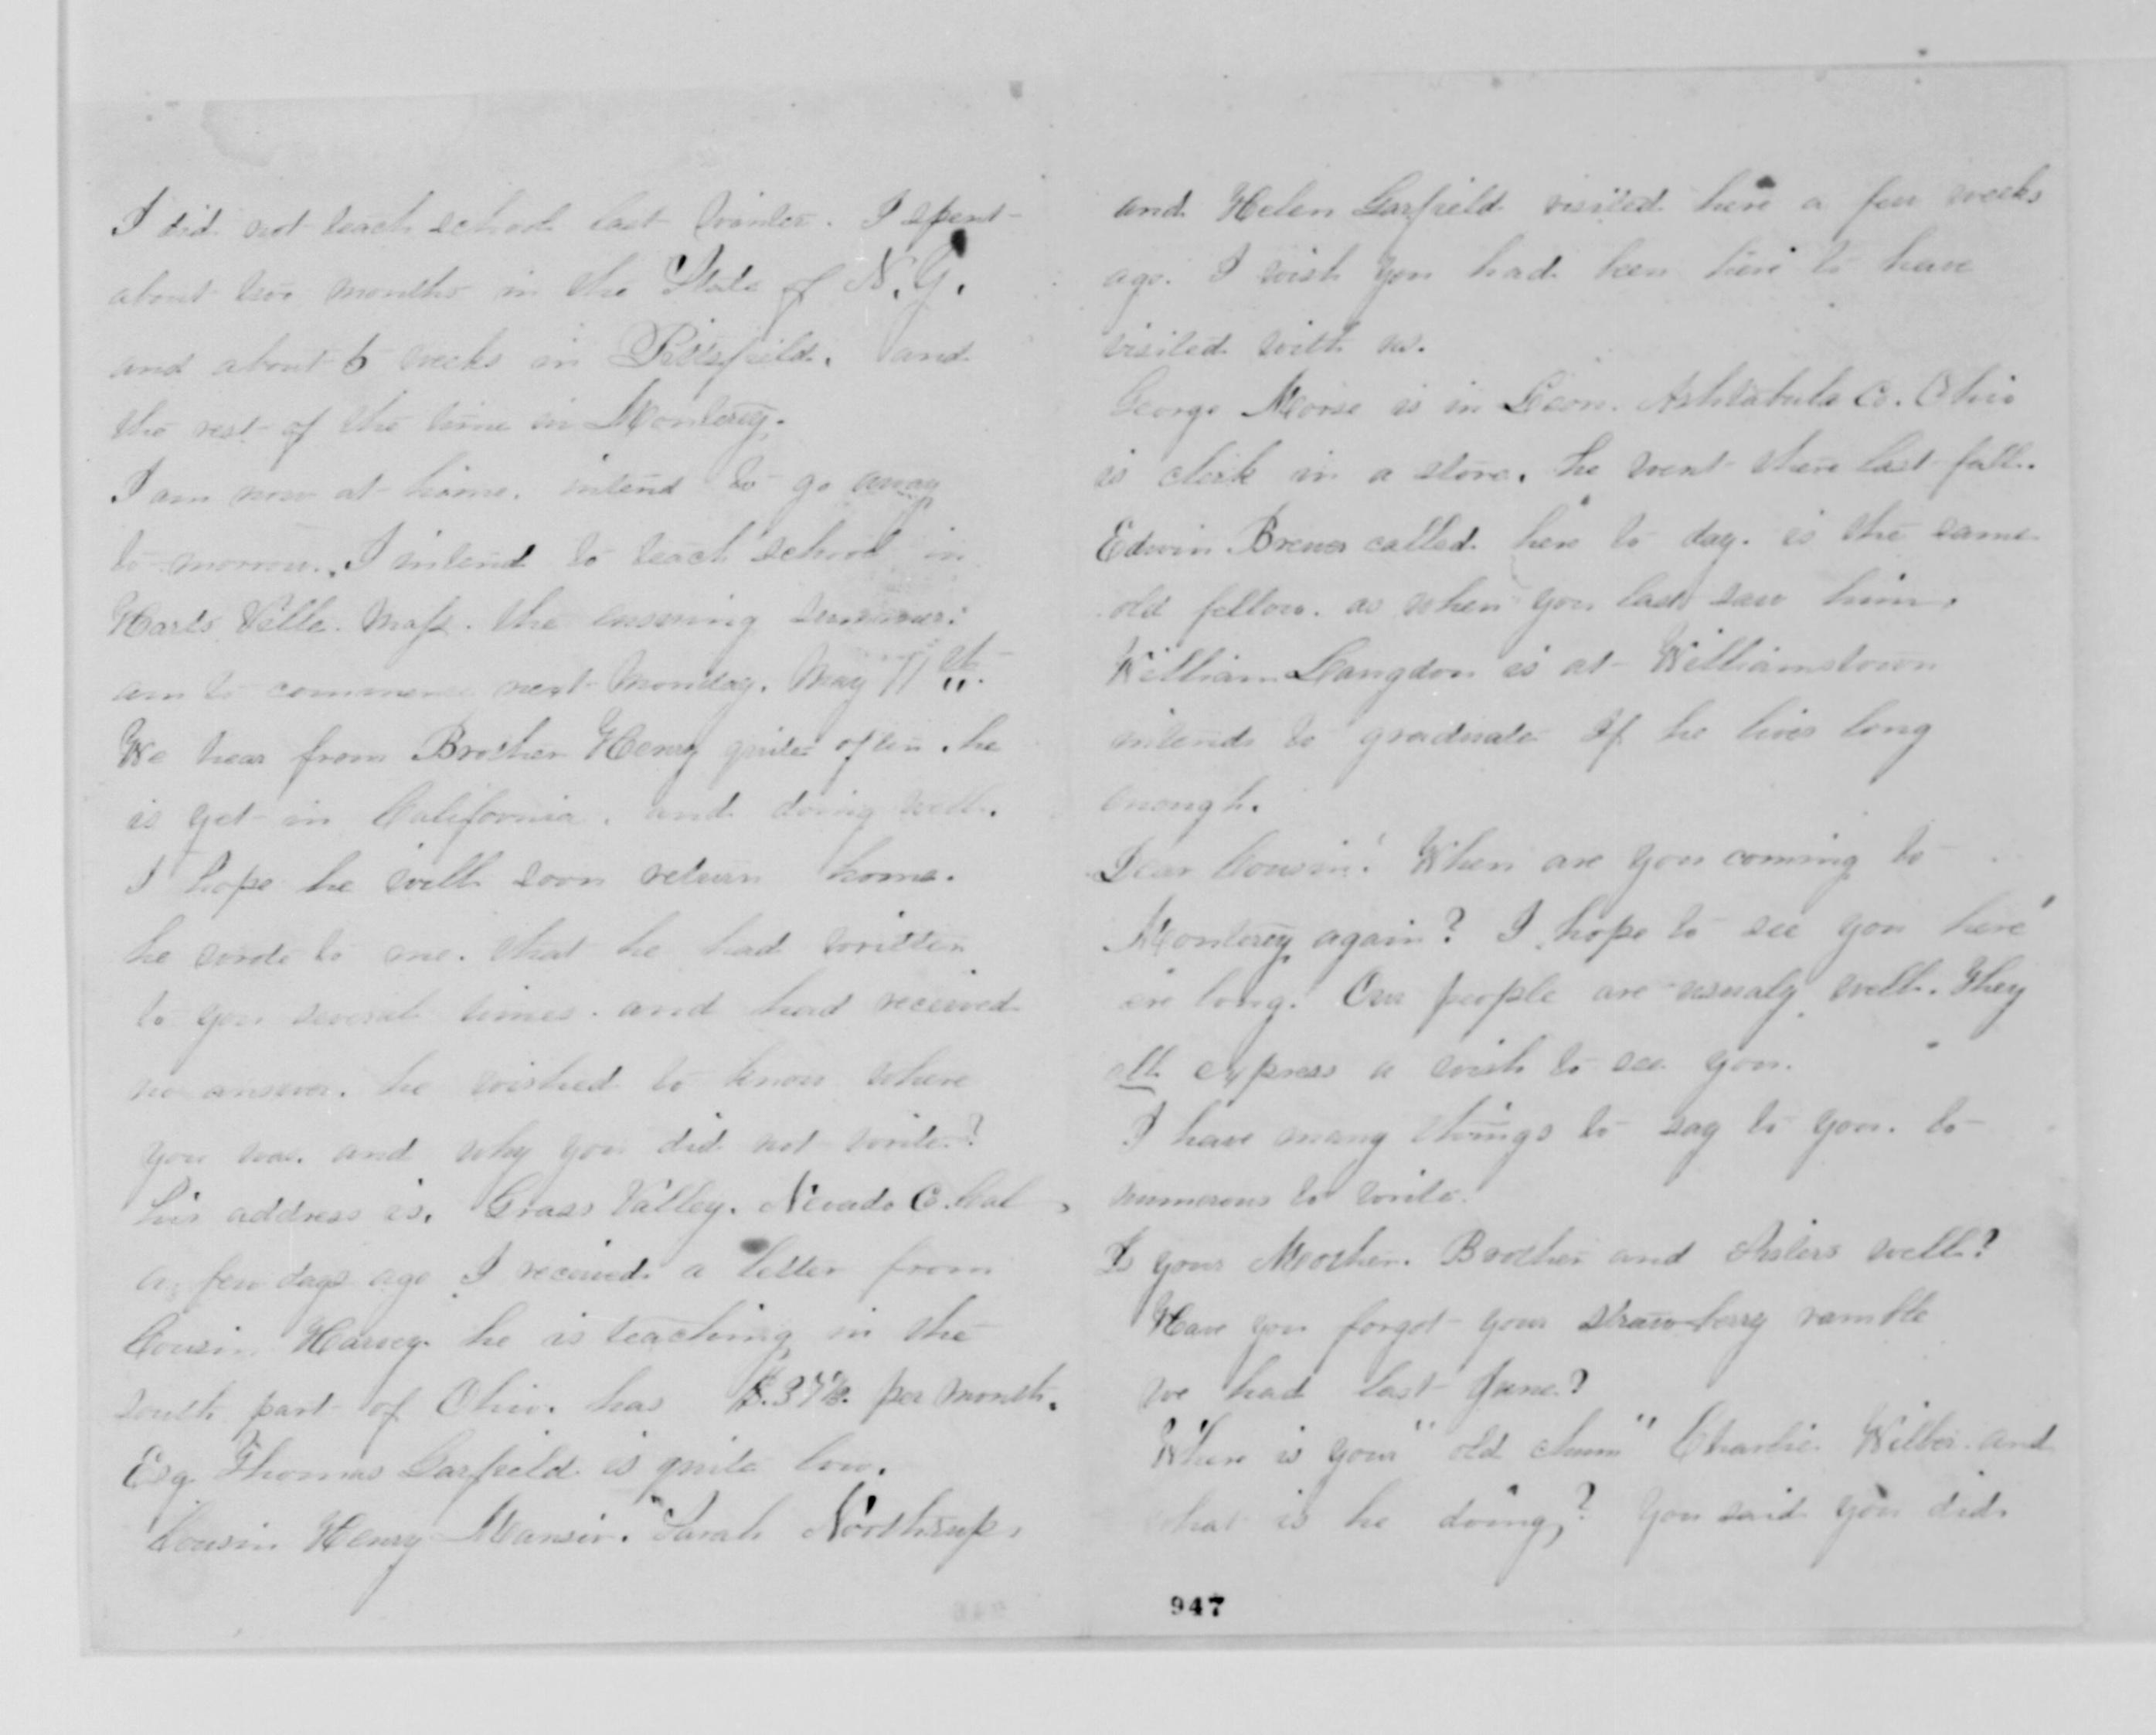 I did not teach school last winter. I spent
about two months in the State of N.Y.
and about 6 weeks in Pittsfield. and
the rest of the time in Monterey.
I am now at home. intend to go away
to-morrow. I intend to teach school in
Harts Ville. Mass. the ensuing summer.
am to commence next Monday. May 11th.
We hear from Brother Henry quite often. he
is yet in California. and doing well.
I hope he will soon return home.
he wrote to me. that he had written
to you several times. and had received
no answer. he wished to know where
you was. and why you did not write?
his address is. Grass Valley. Nevada Co. Cal
a few days ago I received a letter from
Cousin Harvey. he is teaching in the
south part of Ohio. has $.37½. per month.
Esq. Thomas Garfield is quite low.
Cousin Henry Mansir. Sarah Northrup.
and Helen Garfield visited here a few weeks
ago. I wish you had been here to have
visited with us.
George Morse is in Leon. Ashtabula Co. Ohio
is clerk in a store. he went there last fall.
Edwin Brewer called here to day. is the same
old fellow. as when you last saw him.
William Langdon is at Williamstown
intends to graduate if he lives long
enough.
Dear Cousin! When are you coming to
Monterey again? I hope to see you here
ere long. Our people are usualy well. They
all express a wish to see you.
I have many things to say to you. to
numerous to write.
Is your Mother. Brother and Sisters well?
Have you forgot your strawberry ramble
we had last June?
Where is your "old chum" Charlie Wilber and
what is he doing? You said you did
947